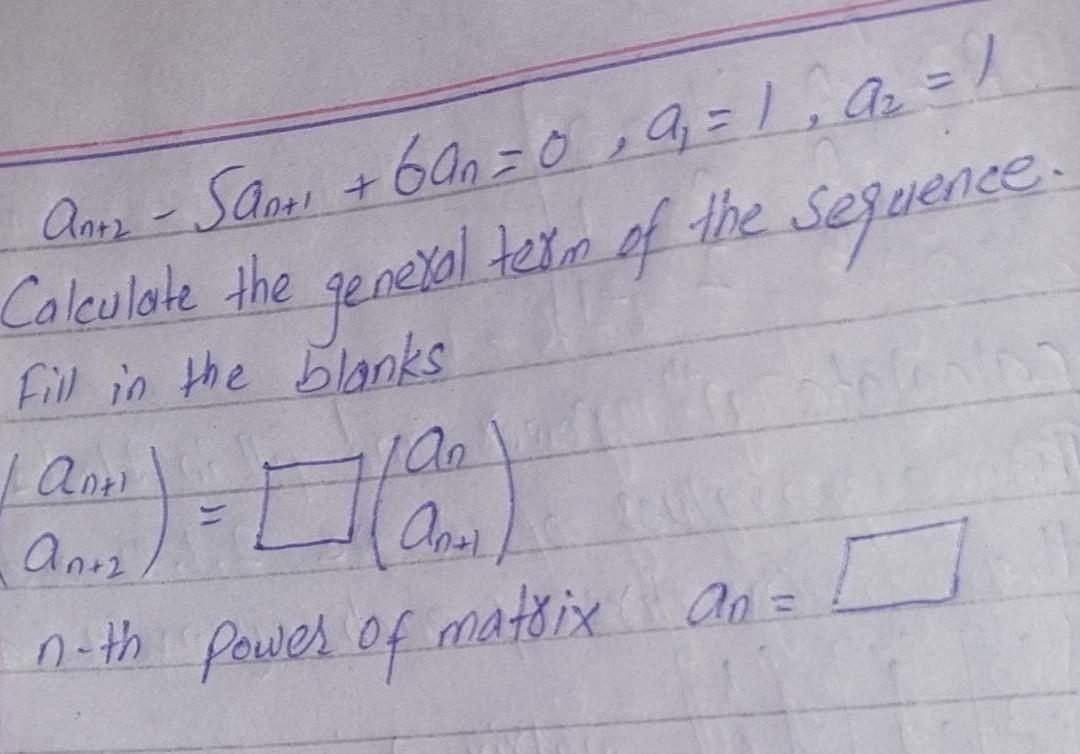 aₙ₊₂ - 5aₙ₊₁ + 6aₙ = 0 , a₁ = 1 , a₂ = 1
Calculate the general term of the sequence.
Fill in the blanks
(aₙ₊₁ aₙ₊₂) = □ (aₙ aₙ₊₁)
n-th power of matrix aₙ = □